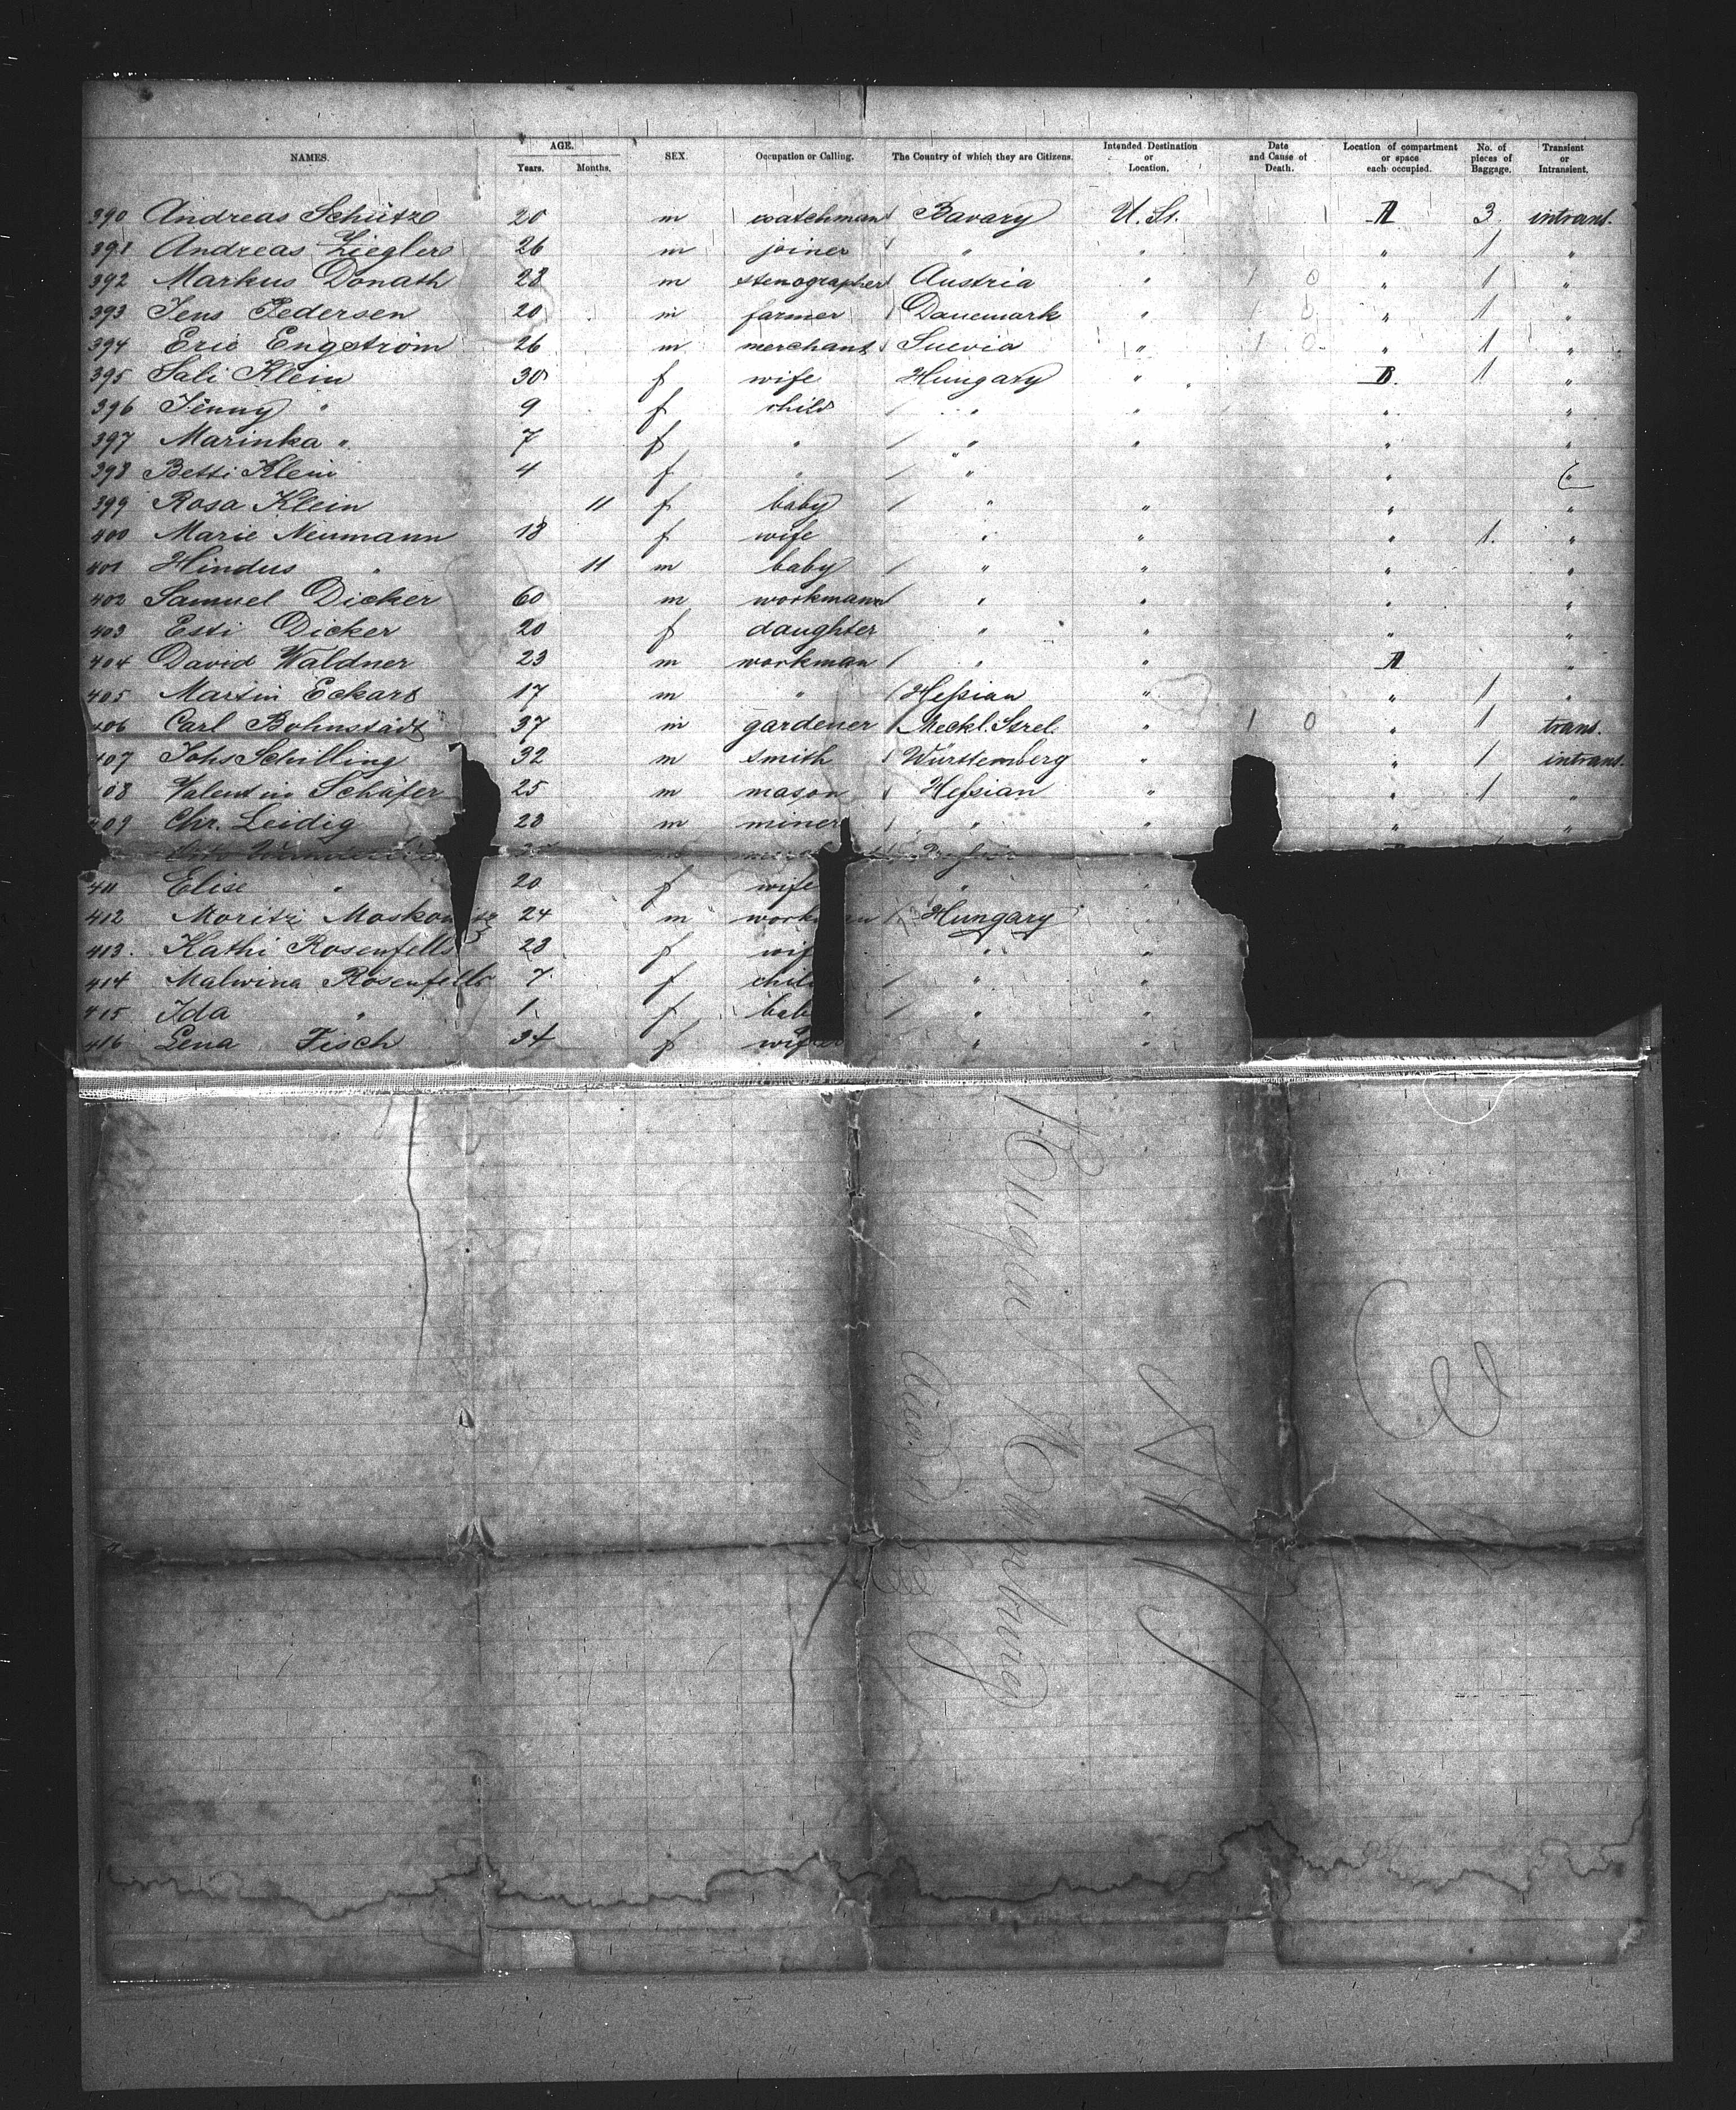 NAMES. AGE. Years. Months. SEX. Occupation or Calling. The Country of which they are Citizens. Intended Destination or Location. Date and Cause of Death. Location of compartment or space each occupied. No. of pieces of Baggage. Transient or Intransient.
390 Andreas Schütze 20 m watchman Bavary U. St. A 3 intrans.
391 Andreas Ziegler 26 m joiner " " " 1 "
392 Markus Donath 28 m stenographer Austria " 1 0 " 1 "
393 Jens Pedersen 20 m farmer Danemark " 1 0 " 1 "
394 Eric Engström 26 m merchant Suevia " 1 0 " 1 "
395 Sali Klein 30 f wife Hungary " B. 1 "
396 Jenny " 9 f child " " " "
397 Marinka " 7 f " " " " "
398 Betti Klein 4 f " " " "
399 Rosa Klein 11 f baby " " " "
400 Marie Neumann 18 f wife " " " 1. "
401 Hindus " 11 m baby " " " "
402 Samuel Dicker 60 m workmann " " " "
403 Esti Dicker 20 f daughter " " " "
404 David Waldner 23 m workman " " A "
405 Martin Eckart 17 m " Heßian " " 1 "
406 Carl Bohnstädt 37 m gardener Meckl. Strel. " 1 0 " 1 trans.
407 Johs Schilling 32 m smith Württemberg " 1 intrans.
08 Valentin Schäfer 25 m mason Heßian " " 1 "
409 Chr. Leidig 28 m miner " " " "
411 Elise " 20 f wife " "
412 Moritz Moskowitz 24 m workman Hungary "
413. Kathi Rosenfeld 28 f wif " "
414 Malwina Rosenfeld 7 f chil " "
415 Ida " 1 f bab " "
416 Lena Fisch 34 f wife " "
Hamburg